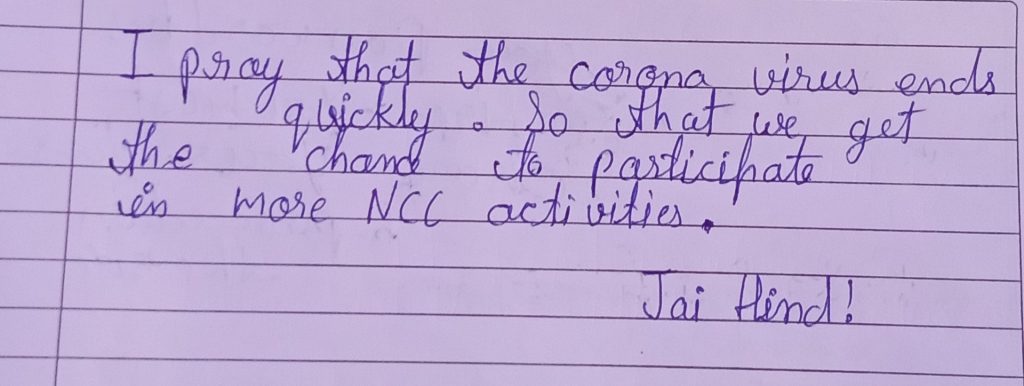 I pray that the corona virus ends
quickly. So that we get
the chance to participate
in more NCC activities.
Jai Hind!